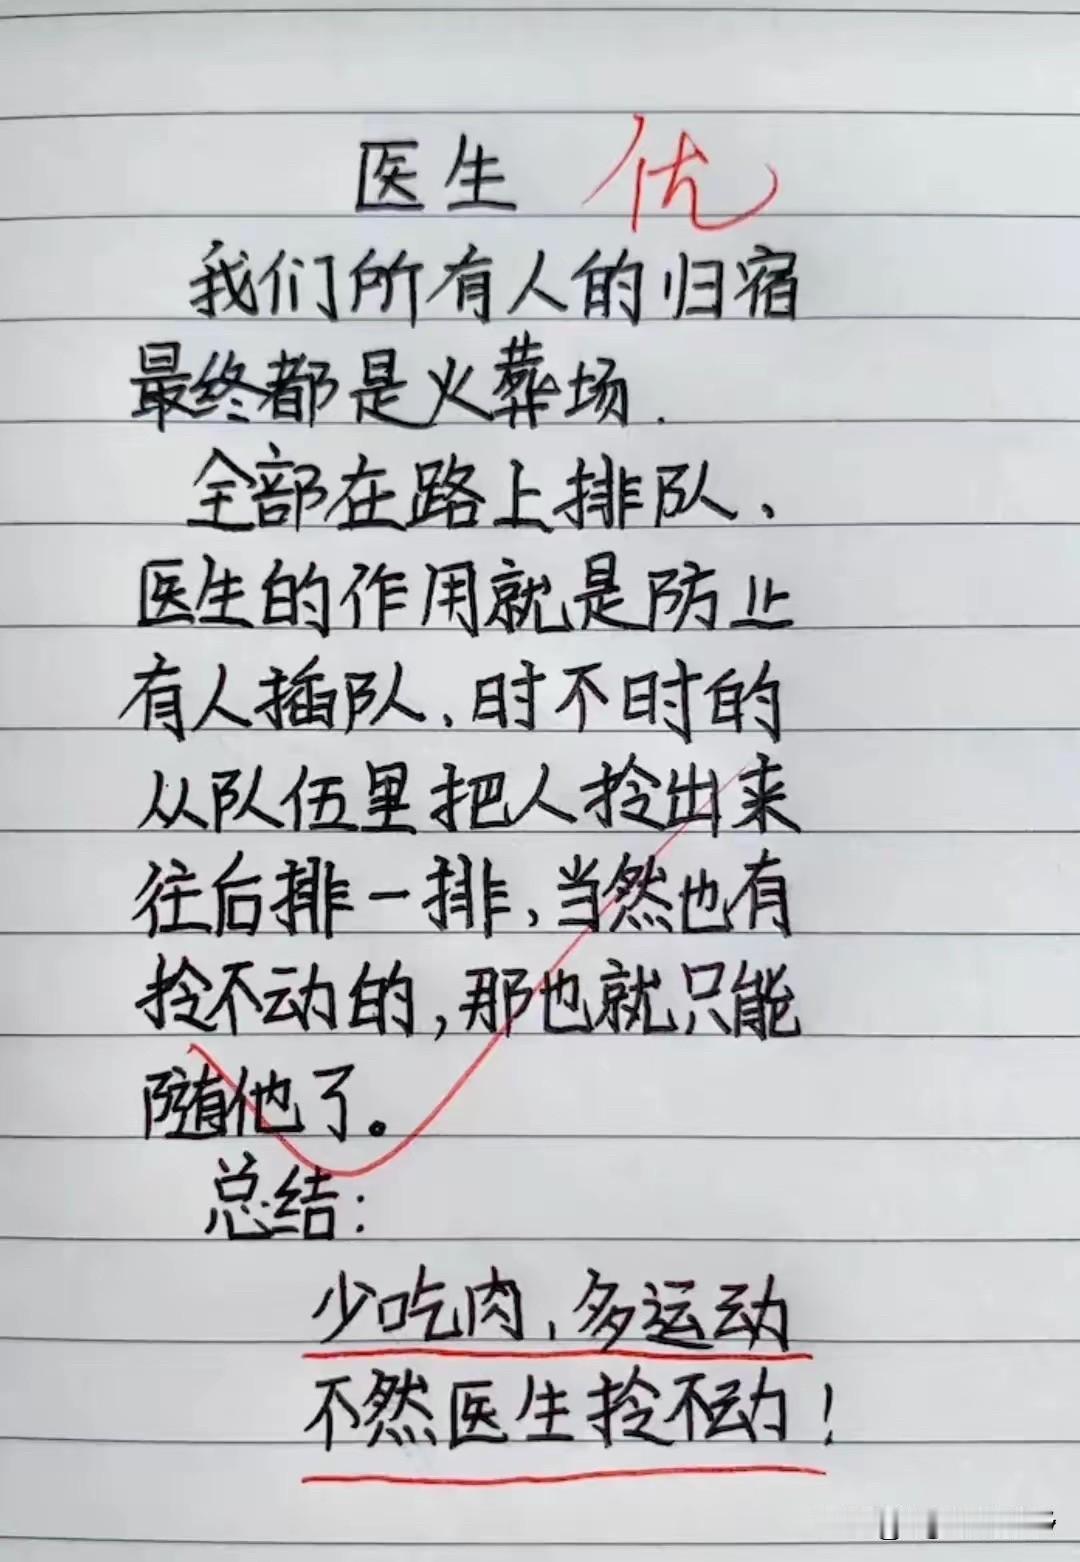 医生 优
我们所有人的归宿
最终都是火葬场.
全部在路上排队、
医生的作用就是防止
有人插队、时不时的
从队伍里把人拎出来
往后排一排,当然也有
拎不动的,那也就只能
随他了。
总结:
少吃肉、多运动
不然医生拎不动!